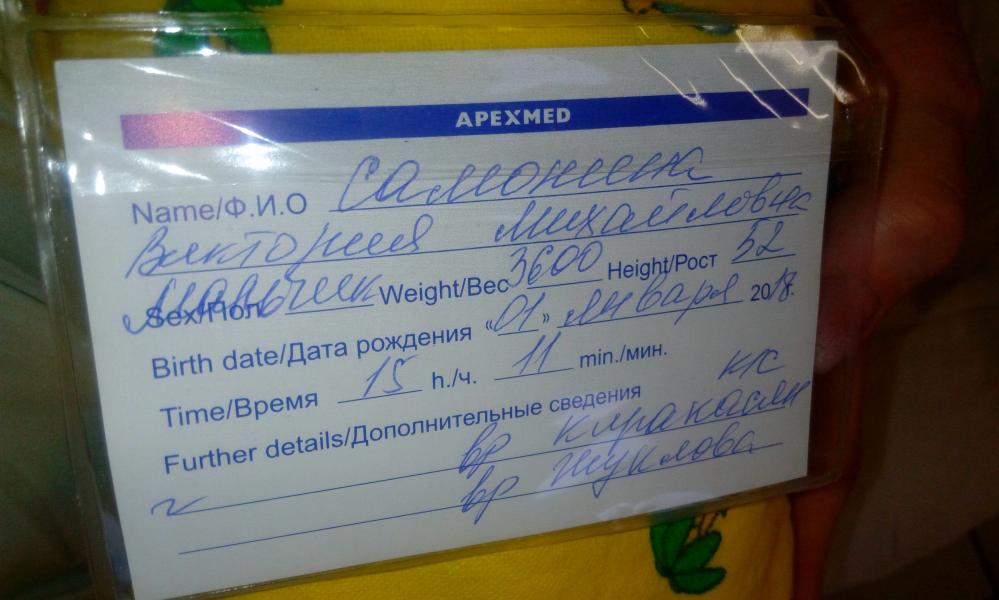 APEXMED
Name/Ф.И.О Самонина
Виктория Михайловна
Sex/Пол мальчик Weight/Вес 3600 Height/Рост 52
Birth date/Дата рождения «01» января 2018г.
Time/Время 15 h./ч. 11 min./мин.
Further details/Дополнительные сведения кс
вр Киракасян
вр Жуклова